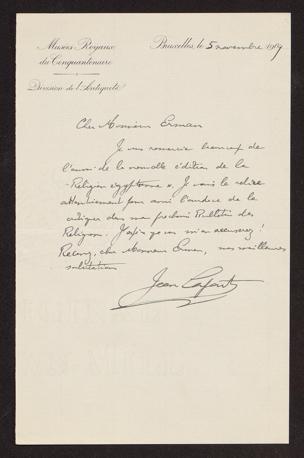 Musées Royaux
du Cinquantenaire
Division de l'Antiquité
Bruxelles, le 5 novembre 1909
Cher Monsieur Erman
Je vous remercie beaucoup de
l'envoi de la nouvelle édition de la
"Religion égyptienne". Je vais la relire
attentivement pour avoir l'audace de la
critiquer dans mon prochain Bulletin des
Religions. J'espère que vous m'en excuserez!
Recevez, cher Monsieur Erman, mes meilleures
salutations
Jean Capart